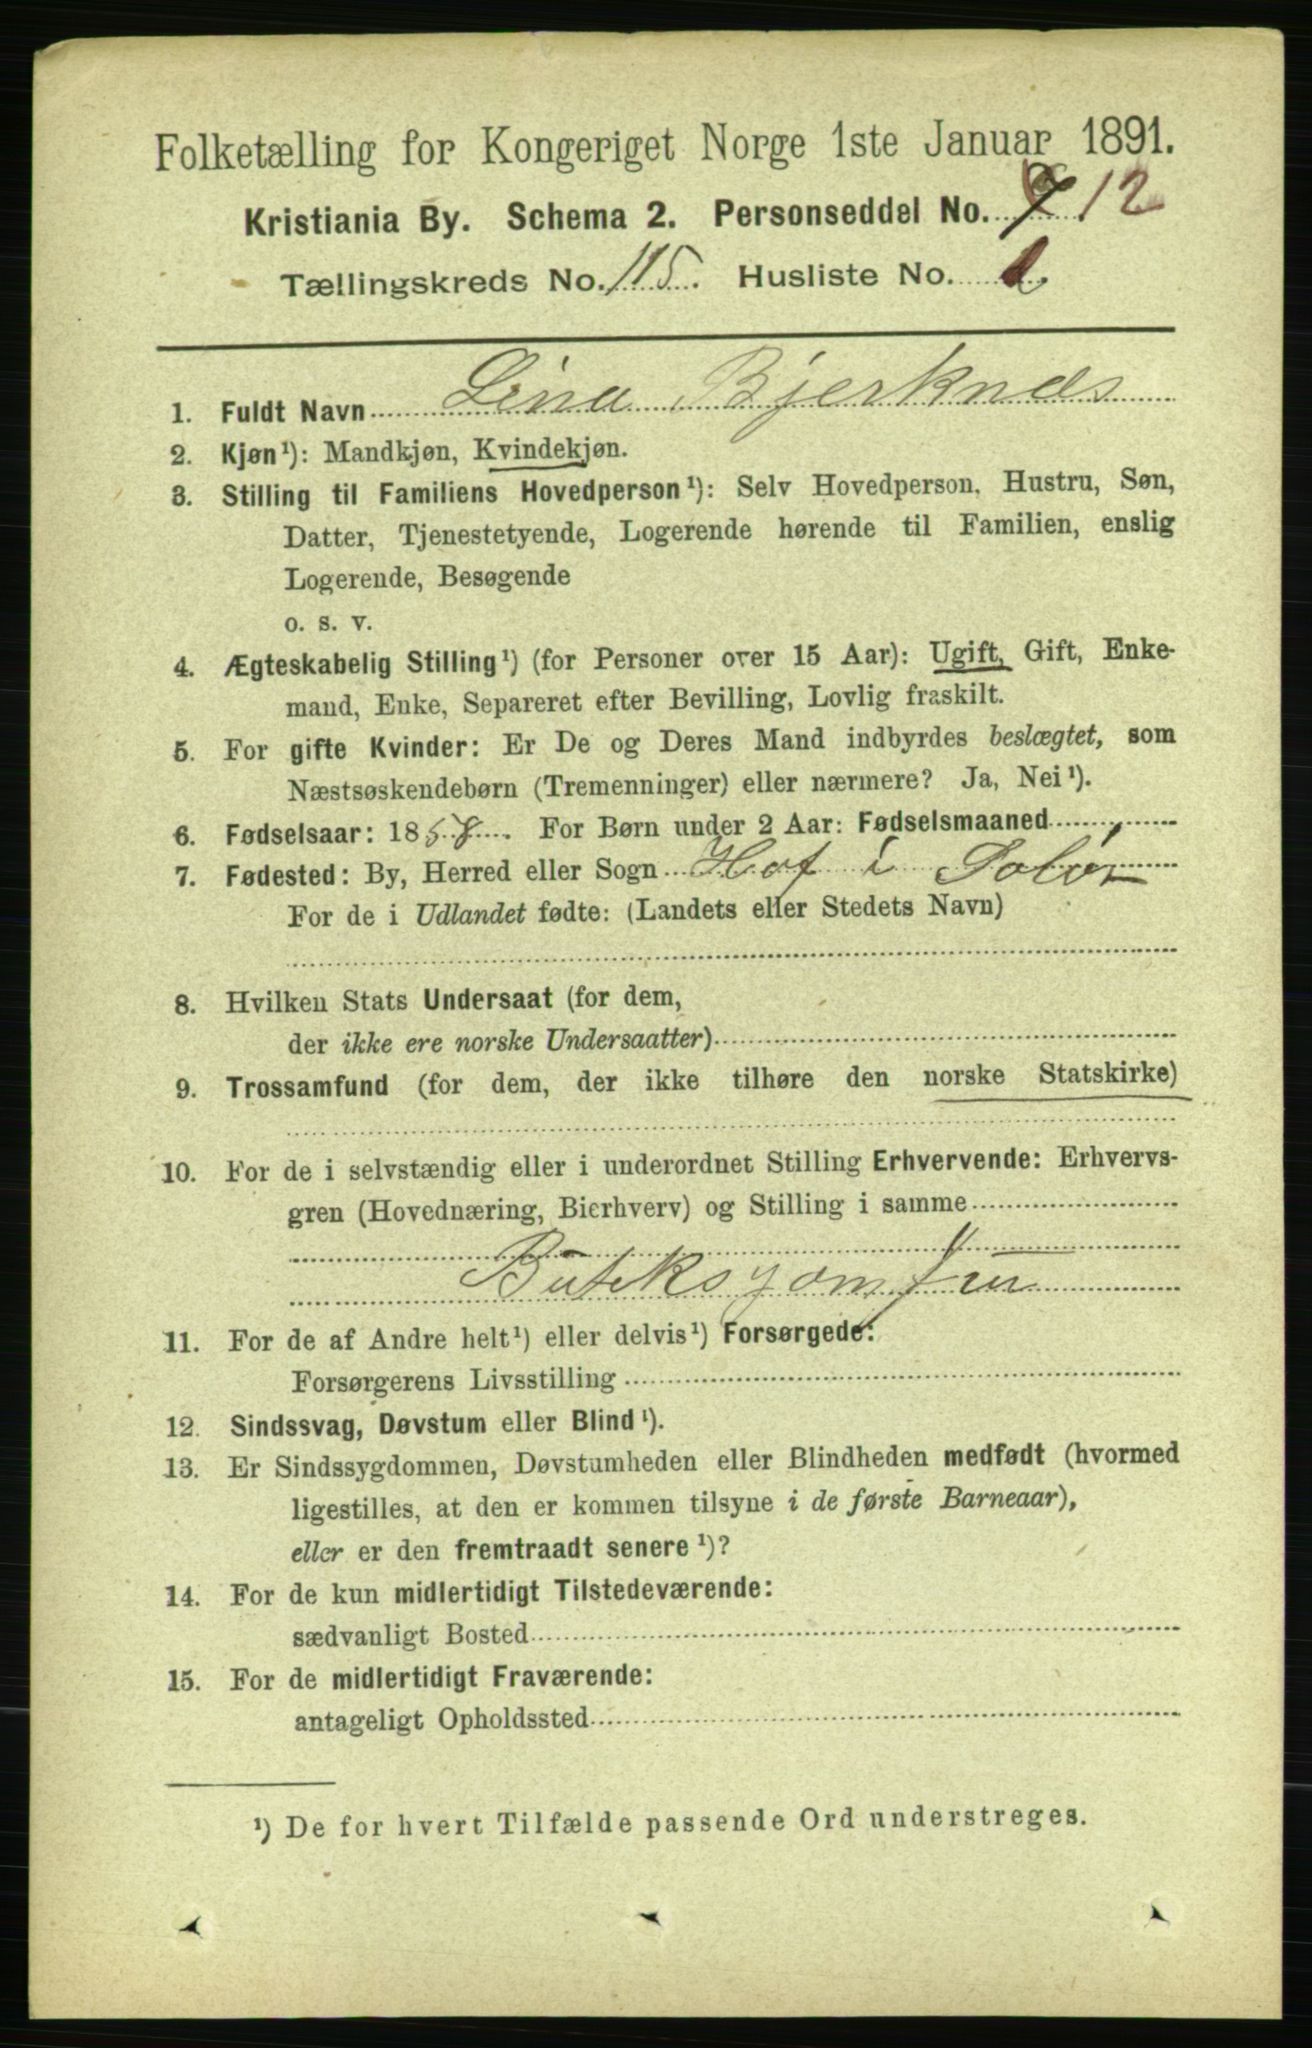 Folketælling for Kongeriget Norge 1ste Januar 1891.
Kristiania By. Schema 2. Personseddel No. 12
Tællingskreds No. 115. Husliste No.
1. Fuldt Navn Lina Bjerknæs
2. Kjøn¹): Mandkjøn, Kvindekjøn.
3. Stilling til Familiens Hovedperson¹): Selv Hovedperson, Hustru, Søn,
Datter, Tjenestetyende, Logerende hørende til Familien, enslig
Logerende, Besøgende
o. s. v.
4. Ægteskabelig Stilling¹) (for Personer over 15 Aar): Ugift, Gift, Enke-
mand, Enke, Separeret efter Bevilling, Lovlig fraskilt.
5. For gifte Kvinder: Er De og Deres Mand indbyrdes beslægtet, som
Næstsøskendebørn (Tremenninger) eller nærmere? Ja, Nei¹).
6. Fødselsaar: 1858. For Børn under 2 Aar: Fødselsmaaned
7. Fødested: By, Herred eller Sogn Hof i Solør
For de i Udlandet fødte: (Landets eller Stedets Navn)
8. Hvilken Stats Undersaat (for dem,
der ikke ere norske Undersaatter)
9. Trossamfund (for dem, der ikke tilhøre den norske Statskirke)
10. For de i selvstændig eller i underordnet Stilling Erhvervende: Erhvervs-
gren (Hovednæring, Bierhverv) og Stilling i samme
Butiksjomfru
11. For de af Andre helt¹) eller delvis¹) Forsørgede:
Forsørgerens Livsstilling
12. Sindssvag, Døvstum eller Blind¹).
13. Er Sindssygdommen, Døvstumheden eller Blindheden medfødt (hvormed
ligestilles, at den er kommen tilsyne i de første Barneaar),
eller er den fremtraadt senere¹)?
14. For de kun midlertidigt Tilstedeværende:
sædvanligt Bosted
15. For de midlertidigt Fraværende:
antageligt Opholdssted
¹) De for hvert Tilfælde passende Ord understreges.